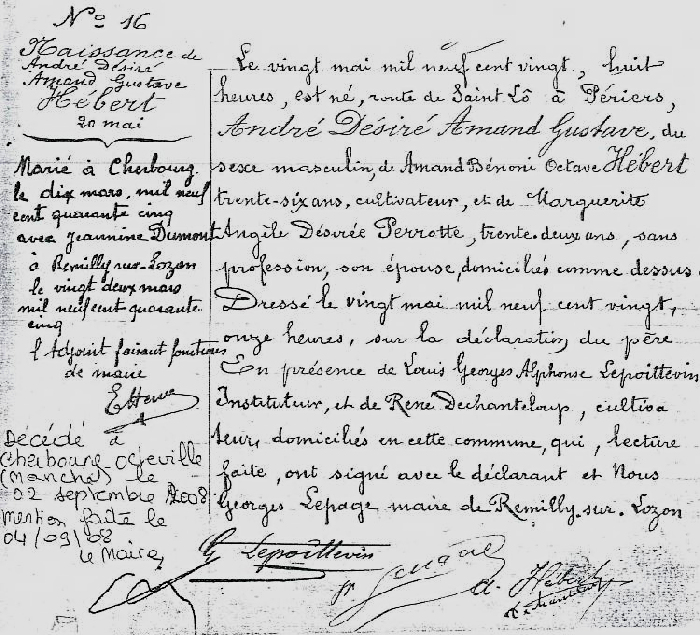 N° 16
Naissance de
André Désiré
Amand Gustave
Hébert
20 mai
Marié à Cherbourg
le dix mars mil neuf
cent quarante cinq
avec Jeannine Dumont
à Remilly-sur-Lozon
le vingt deux mars
mil neuf cent quarante
cinq
l'Adjoint faisant fonctions
de maire
Décédé à
Cherbourg-Octeville
(Manche) le
02 septembre 2008
Mention faite le
04/09/08
Le Maire,
Le vingt mai mil neuf cent vingt, huit
heures, est né, route de Saint Lô à Périers,
André Désiré Amand Gustave, du
sexe masculin, d Amand Bénoni Octave Hébert
trente-six ans, cultivateur, et de Marguerite
Angèle Désirée Perrotte, trente-deux ans, sans
profession, son épouse, domiciliés comme dessus
Dressé le vingt mai mil neuf cent vingt,
onze heures, sur la déclaration du père
En présence de Louis Georges Alphonse Lepoittevin
Instituteur, et de René Dechanteloup, cultiva
teur, domiciliés en cette commune, qui, lecture
faite, ont signé avec le déclarant et Nous
Georges Lepage maire de Remilly-sur-Lozon
Lepoittevin
a. Hébert